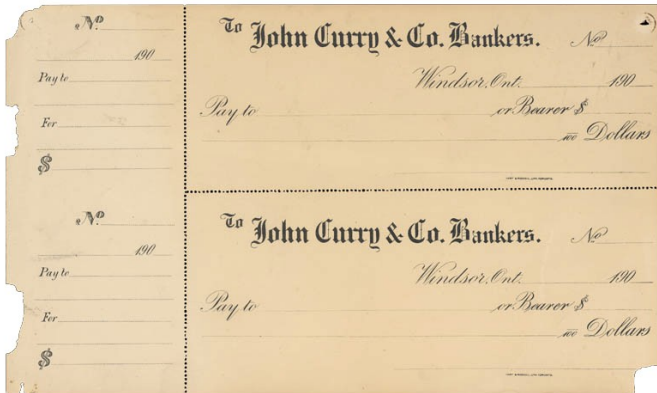 No
190
Pay to
For
$
To John Curry & Co. Bankers. No
Windsor, Ont. 190
Pay to or Bearer $
100 Dollars
No
190
Pay to
For
$
To John Curry & Co. Bankers. No
Windsor, Ont. 190
Pay to or Bearer $
100 Dollars